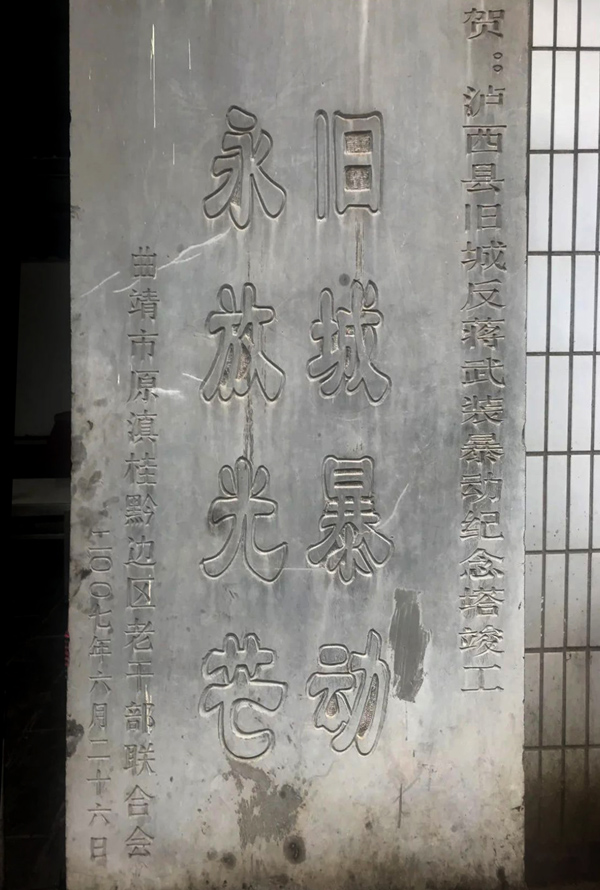 贺：泸西县旧城反蒋武装暴动纪念塔竣工
旧城暴动
永放光芒
曲靖市原滇桂黔边区老干部联合会
二〇〇七年六月二十六日